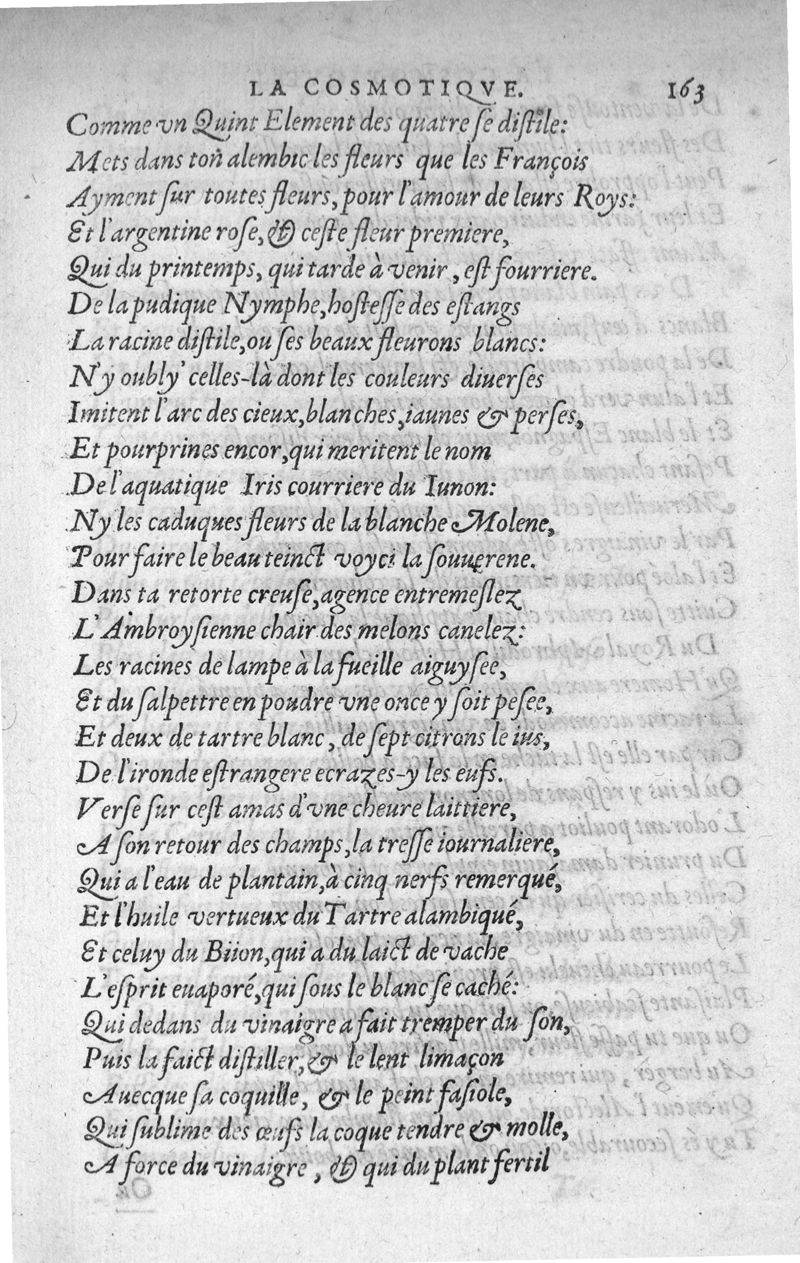 LA COSMOTIQVE. 163
Comme vn Quint Element des quatre se distile:
Mets dans ton alembic les fleurs que les François
Ayment sur toutes fleurs, pour l'amour de leurs Roys:
Et l'argentine rose, & ceste fleur premiere,
Qui du printemps, qui tarde à venir, est fourriere.
De la pudique Nymphe, hostesse des estangs
La racine distile, ou ses beaux fleurons blancs:
N'y oubly' celles-là dont les couleurs diuerses
Imitent l'arc des cieux, blanches, iaunes & perses,
Et pourprines encor, qui meritent le nom
De l'aquatique Iris courriere du Iunon:
Ny les caduques fleurs de la blanche Molene,
Pour faire le beau teinct voyci la souuerene.
Dans ta retorte creuse, agence entremeslez
L'Ambroysienne chair des melons canelez:
Les racines de lampe à la fueille aiguysee,
Et du salpettre en poudre vne once y soit pesee,
Et deux de tartre blanc, de sept citrons le ius,
De l'ironde estrangere ecrazes-y les eufs.
Verse sur cest amas d'vne cheure laittiere,
A son retour des champs, la tresse iournaliere,
Qui a l'eau de plantain, à cinq nerfs remerqué,
Et l'huile vertueux du Tartre alambiqué,
Et celuy du Biion, qui a du laict de vache
L'esprit euaporé, qui sous le blanc se caché:
Qui dedans du vinaigre a fait tremper du son,
Puis la faict distiller, & le lent limaçon
Auecque sa coquille, & le peint fasiole,
Qui sublime des œufs la coque tendre & molle,
A force du vinaigre, & qui du plant fertil